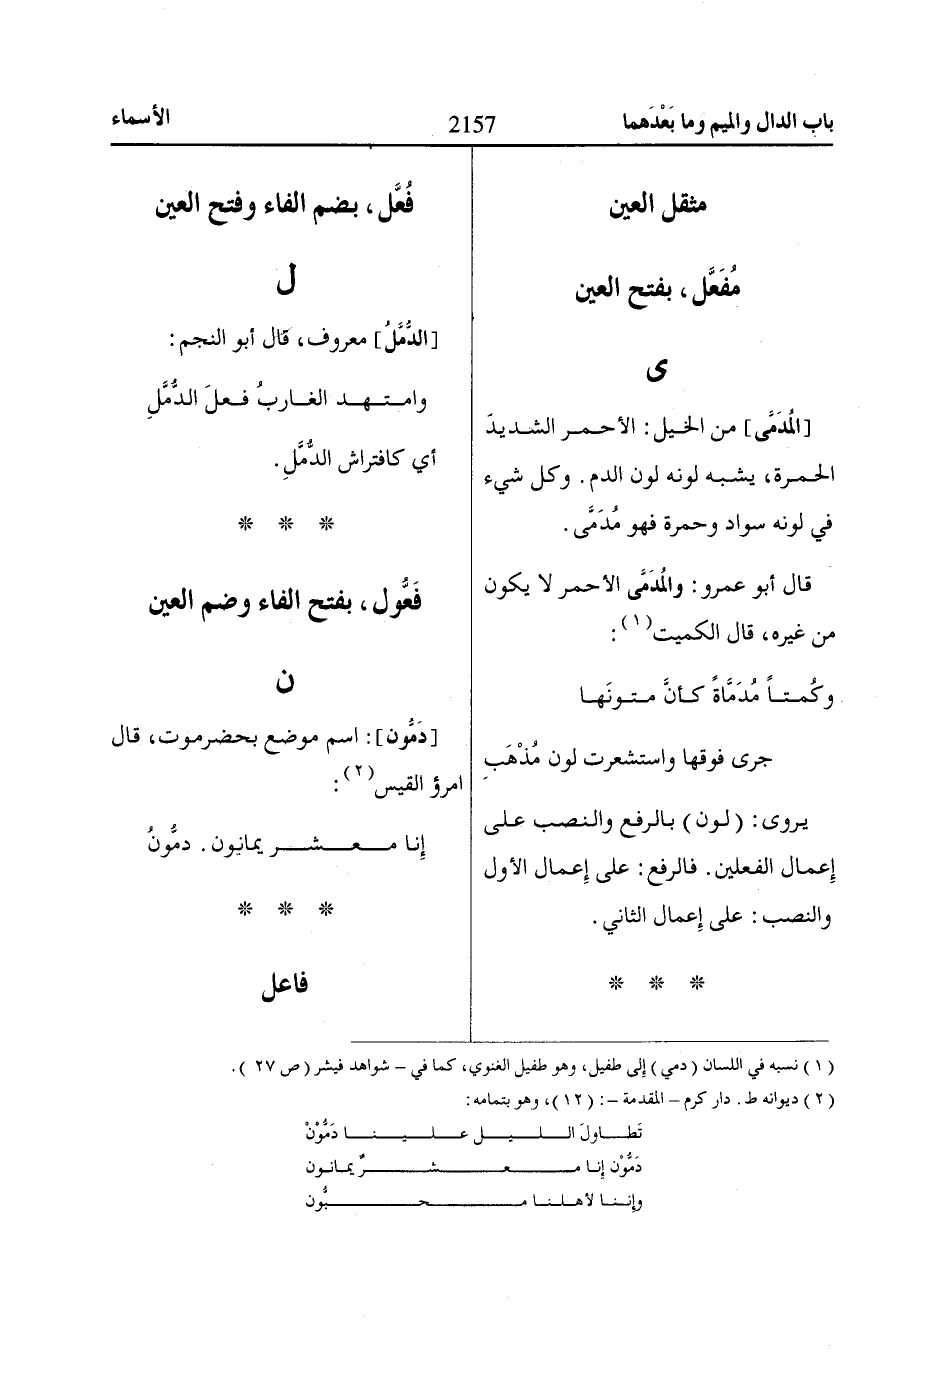 باب الدال والميم وما بَعْدَهما
2157
الأسماء
مثقل العين
مُفَعَّل، بفتح العين
ى
[المُدَمَّى] من الخيل: الأحمر الشديدَ
الحمرة، يشبه لونه لون الدم. وكل شيء
في لونه سواد وحمرة فهو مُدَمَّى.
قال أبو عمرو: والمُدَمَّى الأحمر لا يكون
من غيره، قال الكميت(١):
وكُمتاً مُدَمَّاةً كأنَّ متونَها
جرى فوقها واستشعرت لون مُذْهَبِ
يروى: (لون) بالرفع والنصب على
إعمال الفعلين. فالرفع: على إعمال الأول
والنصب: على إعمال الثاني.
* * *
فُعَّل، بضم الفاء وفتح العين
ل
[الدُّمَّلُ] معروف، قال أبو النجم:
وامتهد الغاربُ فعلَ الدُّمَّلِ
أي كافتراش الدُّمَّلِ.
* * *
فَعُّول، بفتح الفاء وضم العين
ن
[دَمُّون]: اسم موضع بحضرموت، قال
امرؤ القيس(٢):
إنا معشر يمانون. دمُّونُ
* * *
فاعل
(١) نسبه في اللسان (دمي) إلى طفيل، وهو طفيل الغنوي، كما في – شواهد فيشر (ص ٢٧).
(٢) ديوانه ط. دار كرم – المقدمة –: (١٢)، وهو بتمامه:
تَطاولَ الليل علينا دَمُّوْنْ
دَمُّوْن إنا معشرٌ يمانون
وإننا لأهلنا محبُّون